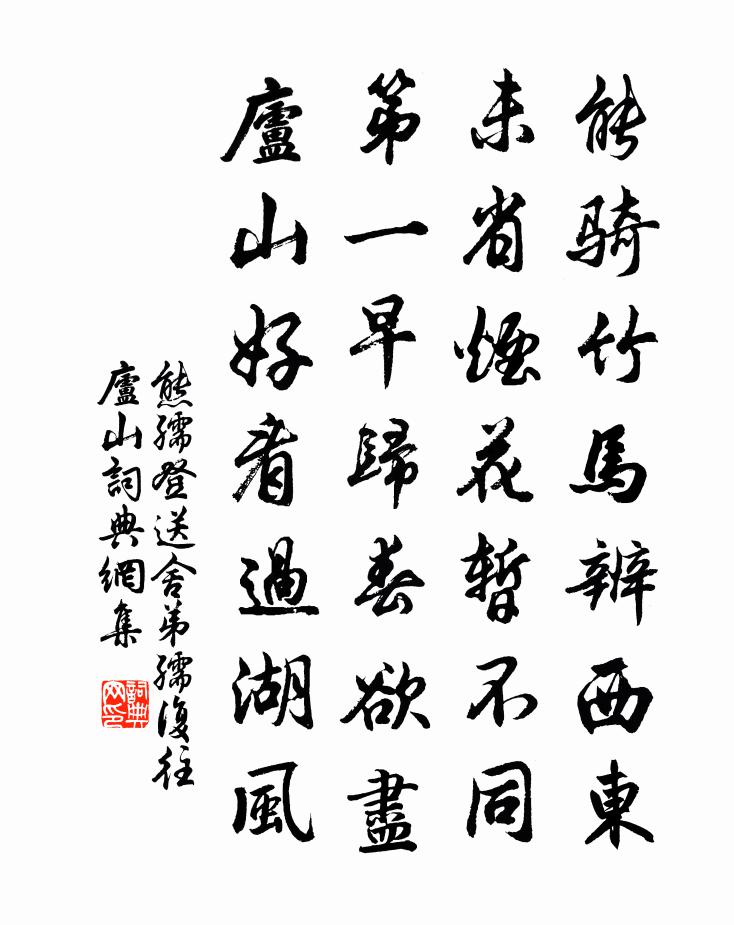 能骑竹馬辨西東
未省煙花暫不同
第一早歸春欲盡
廬山好看過湖風
熊孺登送舍弟孺復往
廬山詞典網集
詞典
网印